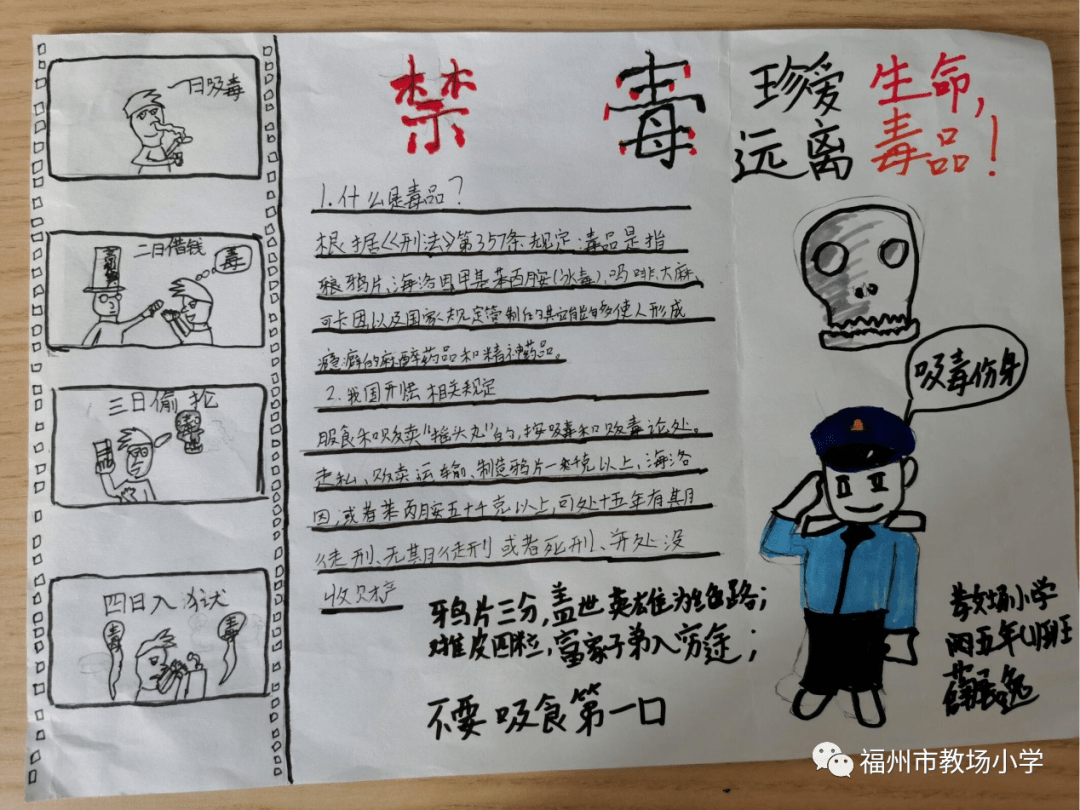 一日吸毒
二日借钱
毒
三日偷抢
毒
四日入狱
毒
毒
禁毒
珍爱生命,
远离毒品!
1.什么是毒品?
根据《刑法》第357条规定毒品是指
鸦片、海洛因甲基苯丙胺(冰毒)、吗啡、大麻、
可卡因以及国家规定管制的其它能够使人形成
瘾癖的麻醉药品和精神药品。
2.我国刑法相关规定
服食和贩卖“摇头丸”的,按吸毒和贩毒论处。
走私、贩卖运输、制造鸦片一千克以上,海洛
因,或者苯丙胺五十千克以上,可处十五年有其月
徒刑、无其月徒刑或者死刑、并处没
收财产
鸦片三分,盖世英雄为绝路;
皮四粒,富家子弟入穷途;
不要吸食第一口
吸毒伤身
教场小学
五年(1)班
福州市教场小学